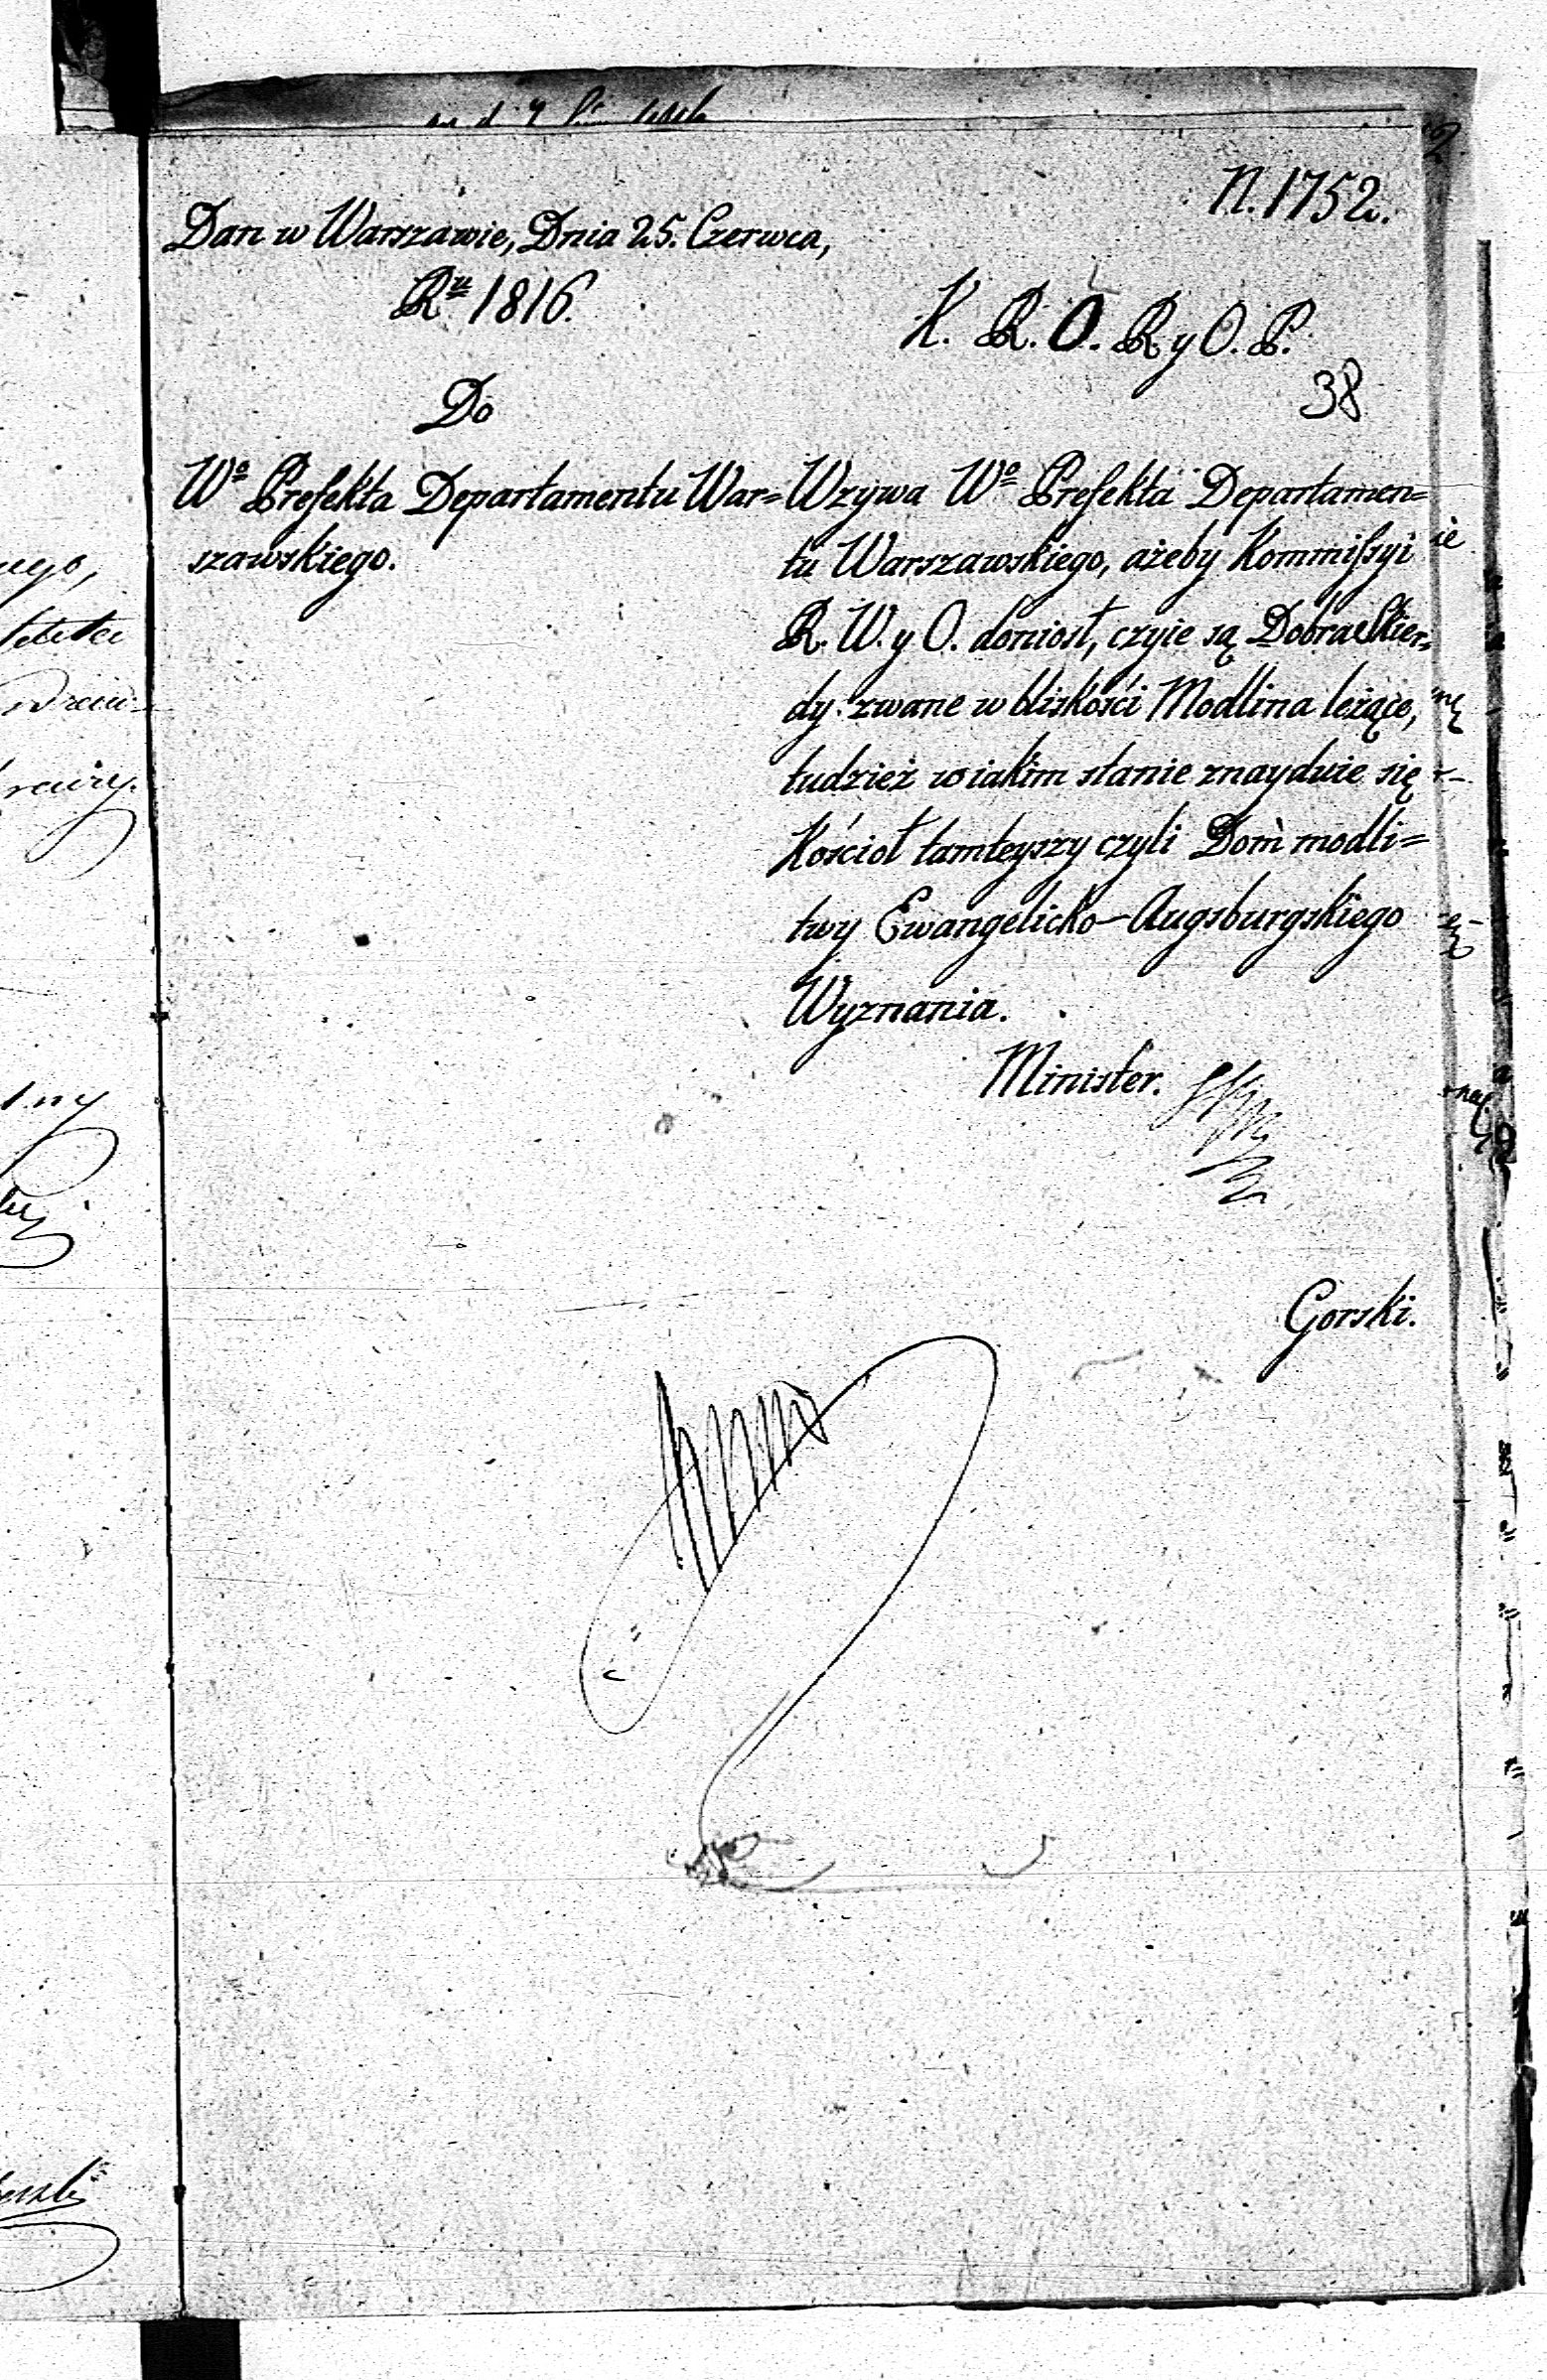 2
N. 1752.
Dan w Warszawie, Dnia 25. Czerwca,
Ru 1816.
K. R. O. R y O. P.
38
Do
Wo Prefekta Departamentu War=
szawskiego.
Wzywa Wo Prefekta Departamen=
tu Warszawskiego, ażeby Kommissyi
R. W. y O. doniosł, czyie są Dobra Skier=
dy zwane w bliskości Modlina leżące,
tudzież w iakim stanie znayduie się
Kościoł tamteyszy czyli Dom modli=
twy Ewangelicko-Augsburgskiego
Wyznania.
Minister.
Gorski.